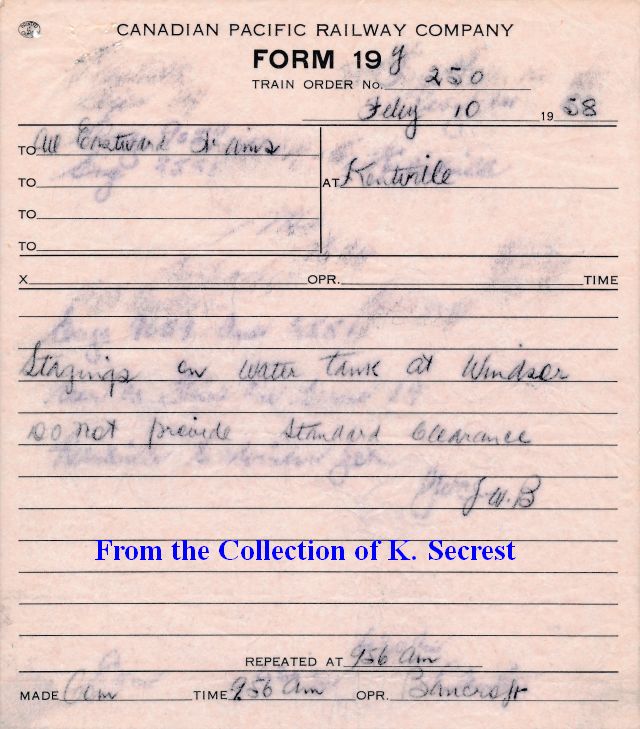 CANADIAN PACIFIC RAILWAY COMPANY
FORM 19 Y
TRAIN ORDER No. 250
Feby 10 19 58
TO All Eastward Trains
TO
AT Kentville
TO
TO
X OPR. TIME
Stagings on water tank at Windsor
do not provide Standard Clearance
J.W.B
From the Collection of K. Secrest
REPEATED AT 956 am
MADE Com TIME 956 am OPR. Bancroft